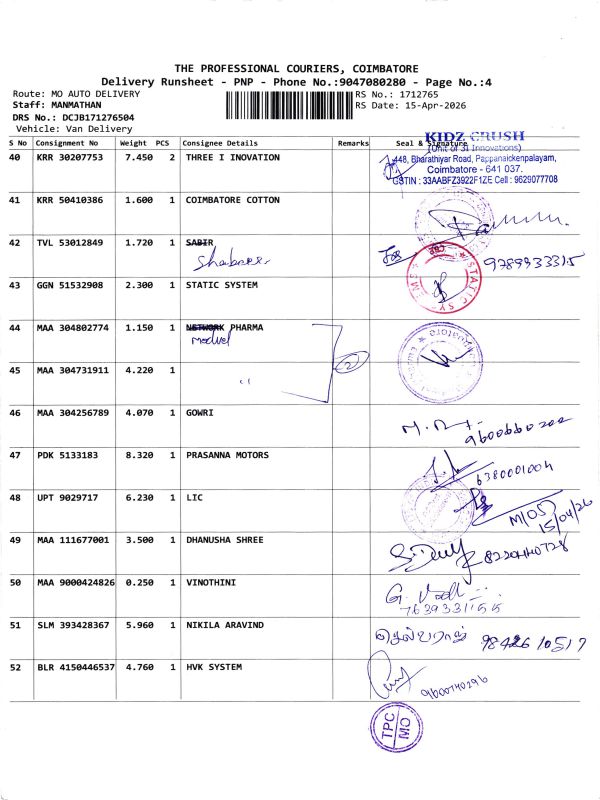 THE PROFESSIONAL COURIERS, COIMBATORE
Delivery Runsheet - PNP - Phone No.:9047080280 - Page No.:4
Route: MO AUTO DELIVERY RS No.: 1712765
Staff: MANMATHAN RS Date: 15-Apr-2026
DRS No.: DCJB171276504
Vehicle: Van Delivery
S No Consignment No Weight PCS Consignee Details Remarks Seal & Signature
KIDZ CRUSH
(Unit of 31 Innovations)
40 KRR 30207753 7.450 2 THREE I INOVATION
448, Bharathiyar Road, Pappanaickenpalayam,
Coimbatore - 641 037.
GSTIN : 33AABFZ3922F1ZE Cell : 9629077708
41 KRR 50410386 1.600 1 COIMBATORE COTTON
42 TVL 53012849 1.720 1 SABIR
9789933315
43 GGN 51532908 2.300 1 STATIC SYSTEM
STATIC SYS
44 MAA 304802774 1.150 1 NETWORK PHARMA
2
45 MAA 304731911 4.220 1
46 MAA 304256789 4.070 1 GOWRI
9600660202
47 PDK 5133183 8.320 1 PRASANNA MOTORS
6380001004
48 UPT 9029717 6.230 1 LIC
M/OS
15/04/26
49 MAA 111677001 3.500 1 DHANUSHA SHREE
50 MAA 9000424826 0.250 1 VINOTHINI
7639331155
51 SLM 393428367 5.960 1 NIKILA ARAVIND
செல்வராஜ் 9842610517
52 BLR 4150446537 4.760 1 HVK SYSTEM
9600740296
TPC
MO